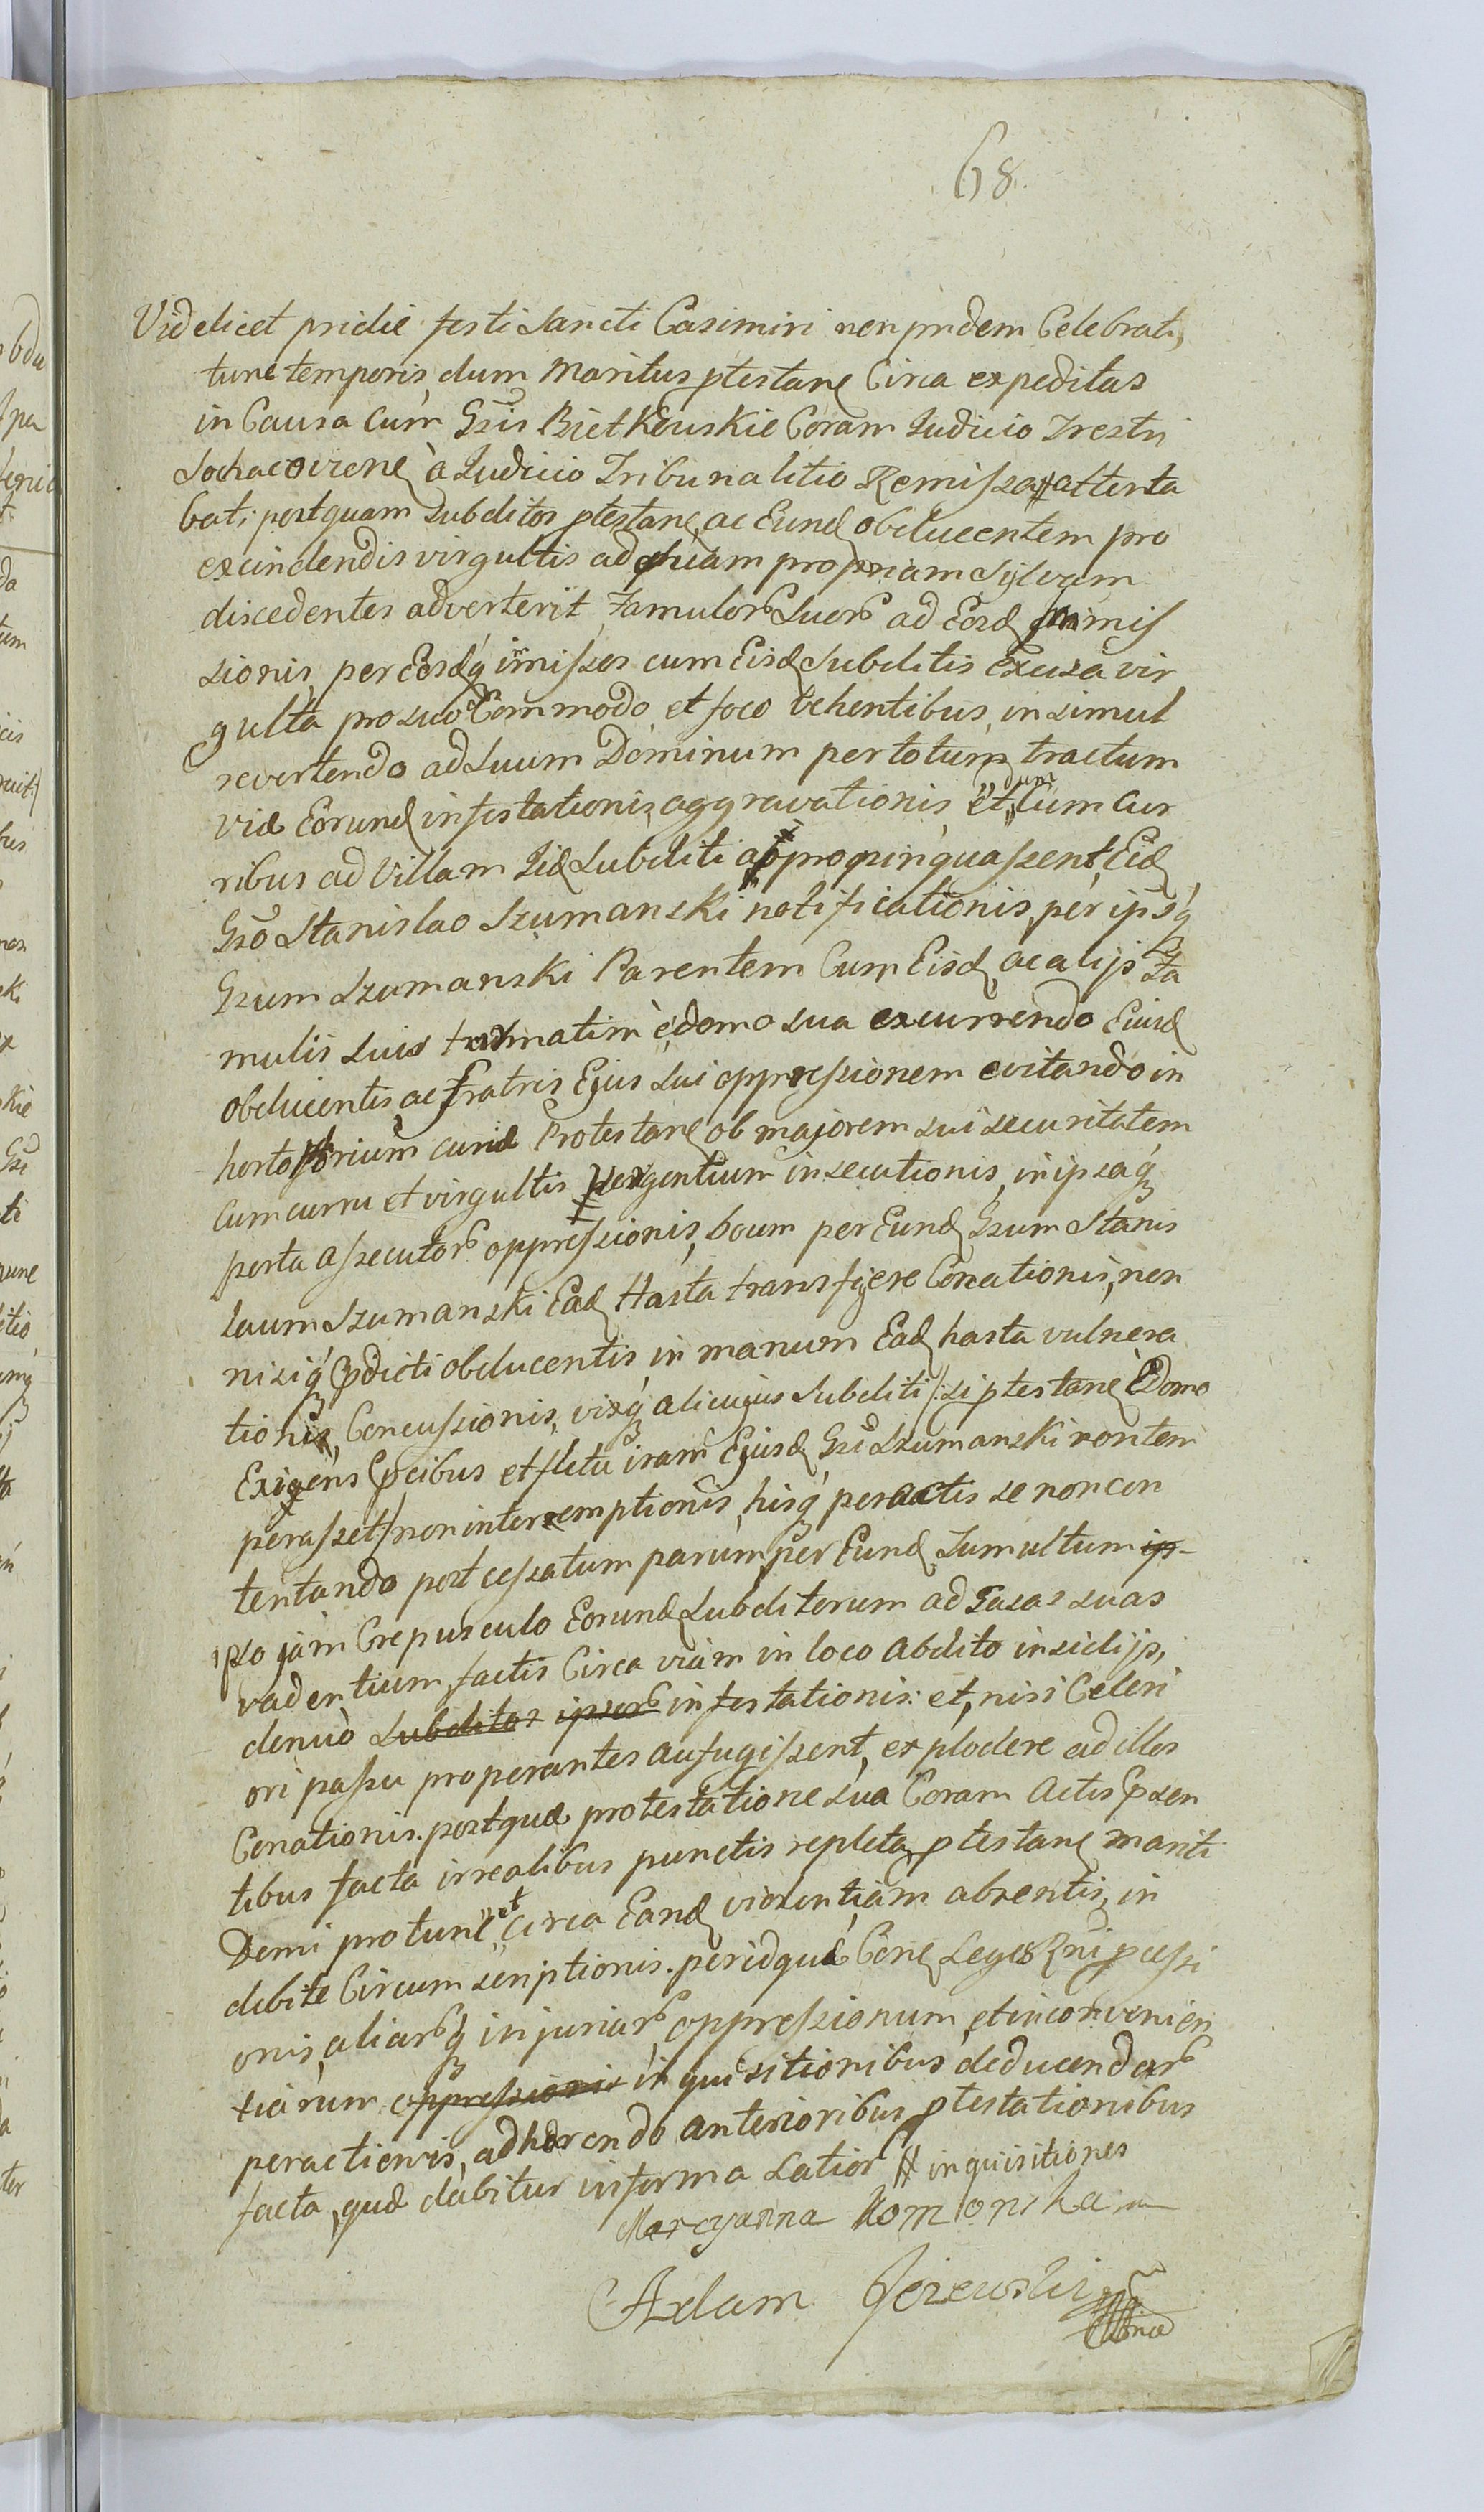 68.
Videlicet pridie festi Sancti Casimiri non pridem Celebrati,
tunc temporis, dum Maritus ptestanę Circa expeditas
in Causa cum Gsis Bietkouskie Coram Judicio Trestri
Sochacoviene à Judicio Tribunalitio Remissa attenta
bat; postquam Subditos ptestanę, ac Eund obducentem pro
excindendis virgultis ad suam propriam Sylvam
discedentes adverterit Famulor Suor ad Eosd immis
sionis, per Eosdq immissos cum Eisd Subditis Excisa vir
gulta pro suo Commodo et foco vehentibus, insimul
revertendo ad Suum Dominum per totum tractum
viæ Eorund infestationis, aggravationis et, dum cum cur
ribus ad Villam Iid Subditi appropinquassent, Eid
Gso Stanislao Szumanski notificationis, per ipsq
Gsum Szumanski Parentem Cum Eisd, ac alijs Fa
mulis Suis turmatim è domo sua excurrendo Eiusd
obducentis, ac Fratris Ejus Sui oppressionem evitando in
horto curiæ Protestanę ob majorem sui securitatem
cum curru et virgultis vergentium insecutionis, in ipsaq
porta assecutor oppressionis, boum per Eund Gsum Stanis
laum Szumanski Ead Hasta transfigere Conationis, non
nisiq pdicti obducentis, in manum Ead hasta vulnera
tionis, Concussionis, vixq alicujus Subditi /:si ptestanę È domo
Exiens pcibus et fletu iram Ejusd Gsi Szumanski non tem
perasset/ non interemptionis, hisq peractis se non con
tentando post cessatum parum per Eund Tumultum ip-
ipso jam Crepusculo Eorund Subditorum ad Casas suas
vadentium, factis Circa viam in loco abdito insidijs,
denuò Subditos ipsor infestationis: et, nisi Celeri
ori passu properantes aufugissent, explodere ad illos
Conationis. postquæ protestatione sua Coram Actis psen
tibus facta irrealibus punctis repleta, ptestanę mariti
Domi pro tunc et circa Eand violentiam absentis, in
debite Circumscriptionis. peridquæ Conę Leges Rni pcessi
onis, aliarq injuriar, oppressionum, et inconvenien
tiarum oppressionis inquisitionibus deducendar
peractionis, adhærendo anterioribus ptestationibus
facta, quæ dabitur in forma Latior # inquisitiones
Maryanna
Adam